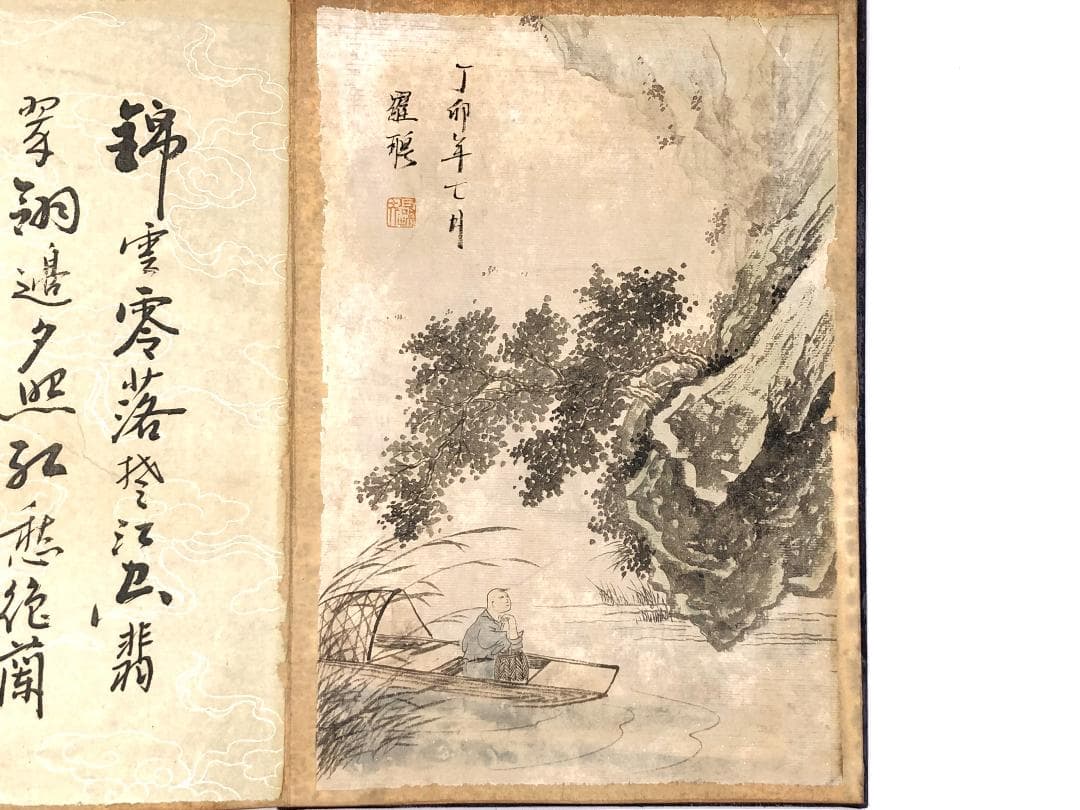 丁卯年七月
羅聘
錦雲零落楚江空翡
翠翎邊夕照紅愁絶蘭